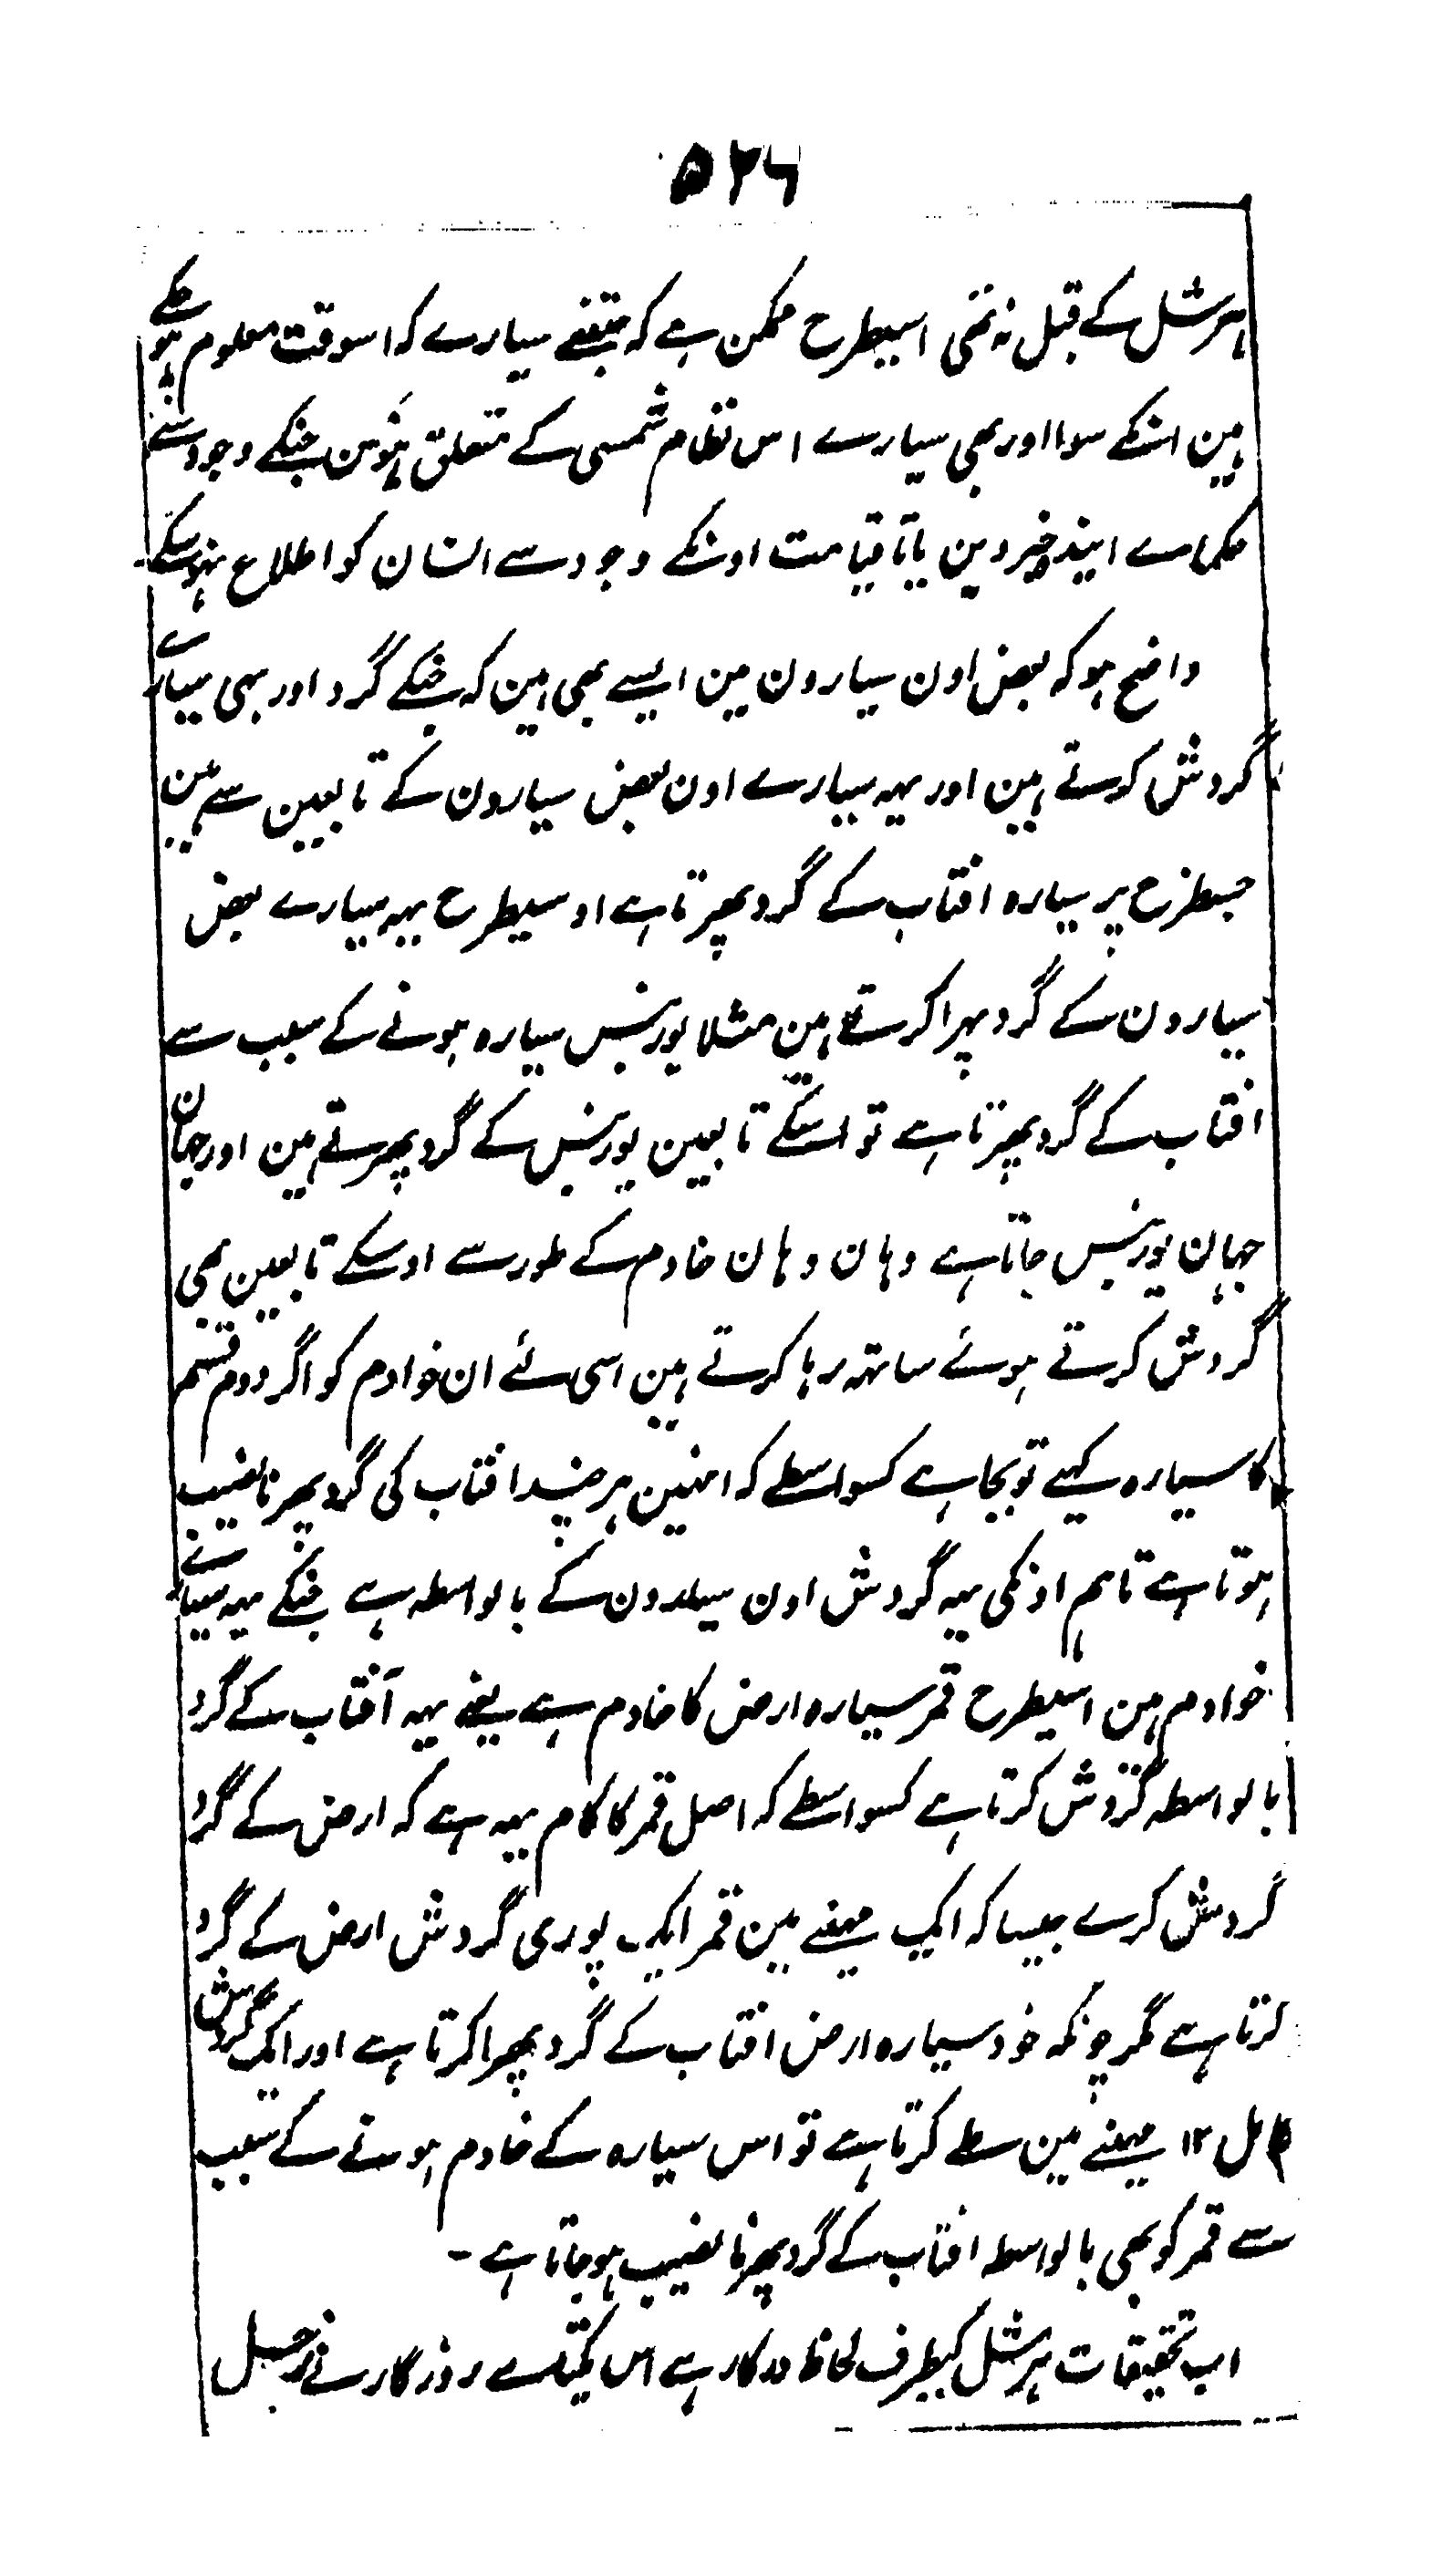 ۵۲۶
ہرشل کے قبل نہ تھی اسیطرح ممکن ہے کہ جتنے سیارے کہ اسوقت معلوم ہو چکے
ہین انکے سوا اور بھی سیارے اس نظام شمسی کے متعلق ہون جنکے وجود سے
حکماے ایندہ خبر دین یا تا قیامت اونکے وجود سے انسان کو اطلاع نہوسکے۔
واضح ہو کہ بعض اون سیارون مین ایسے بھی ہین کہ جنکے گرد اور بہی سیارے
گردش کرتے ہین اور یہہ سیارے اون بعض سیارون کے تابعین سے ہین
جسطرح پر سیارہ افتاب کے گرد پھرتا ہے اوسیطرح یہہ سیارے بعض
سیارون کے گرد پہرا کرتے ہین مثلا یورنیس سیارہ ہونے کے سبب سے
افتاب کے گرد پھرتا ہے تو اسکے تابعین یورنیس کے گرد پھرتے ہین اور جہان
جہان یورنیس جاتا ہے وہان وہان خادم کے طور سے اوسکے تابعین بھی
گردش کرتے ہوئے ساتھ رہا کرتے ہین اسی لئے ان خوادم کو اگر دوم قسم
کا سیارہ کہیے تو بجا ہے کسواسطے کہ انہین ہر چند افتاب کی گرد پھرنا نصیب
ہوتا ہے تاہم اونکی یہہ گردش اون سیارون کے بالواسطہ ہے جنکے یہہ سیارے
خوادم ہین اسیطرح قمر سیارہ ارض کا خادم ہے یعنے یہہ آفتاب کے گرد
بالواسطہ گردش کرتا ہے کسواسطے کہ اصل قمر کا کام یہہ ہے کہ ارض کے گرد
گردش کرے جیسا کہ ایک مہینے مین قمر ایک پوری گردش ارض کے گرد
کرتا ہے مگر چونکہ خود سیارہ ارض افتاب کے گرد پھرا کرتا ہے اور ایک گردش
کامل ۱۲ مہینے مین طے کرتا ہے تو اس سیارہ کے خادم ہونے کے سبب
سے قمر کو بھی بالواسطہ افتاب کے گرد پھرنا نصیب ہو جاتا ہے۔
اب تحقیقات ہرشل کیطرف لحاظ درکار ہے اس یکتاے روزگار نے زحل